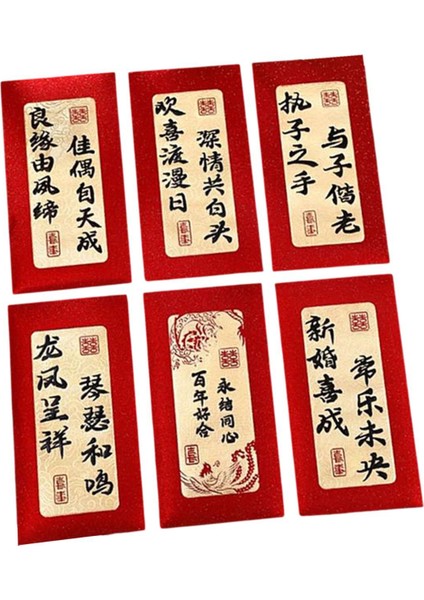 良缘由夙缔
佳偶自天成
欢喜渡漫日
深情共白头
执子之手
与子偕老
龙凤呈祥
琴瑟和鸣
百年好合
永结同心
新婚喜成
常乐未央